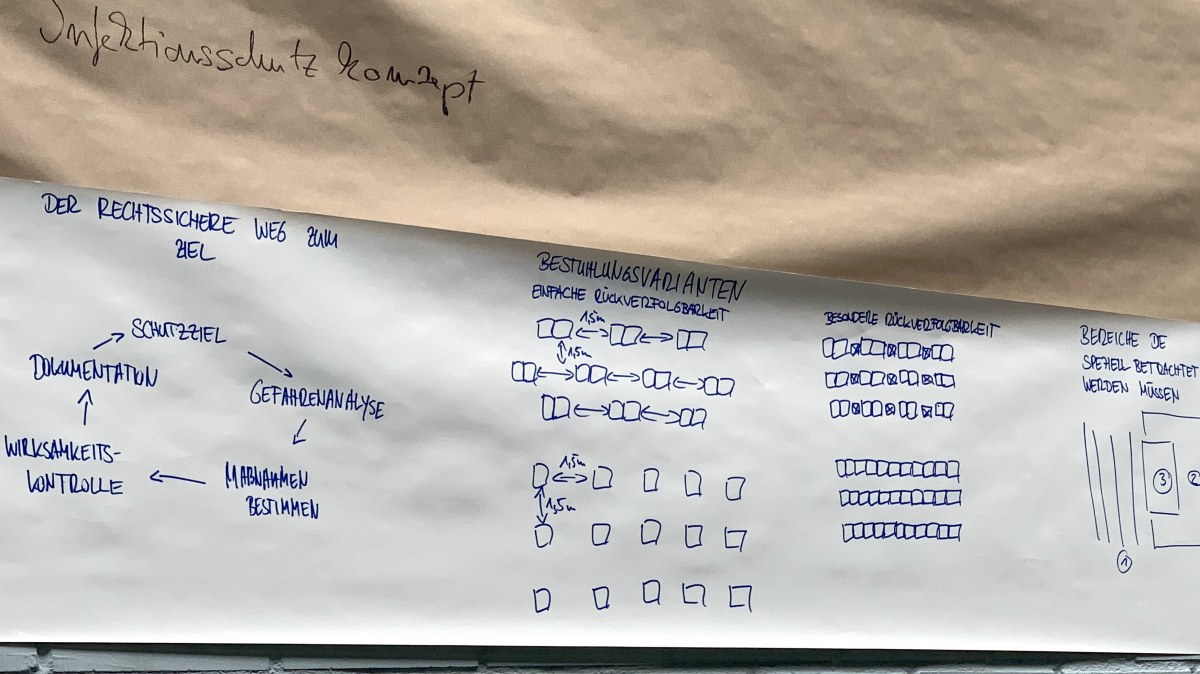 Infektionsschutz Konzept
DER RECHTSSICHERE WEG ZUM
ZIEL
SCHUTZZIEL
GEFAHRENANALYSE
MAßNAHMEN
BESTIMMEN
WIRKSAMKEITS-
KONTROLLE
DOKUMENTATION
BESTUHLUNGSVARIANTEN
EINFACHE RÜCKVERFOLGBARKEIT
1,5m
1,5m
1,5m
1,5m
BESONDERE RÜCKVERFOLGBARKEIT
BEREICHE DE
SPEZIELL BETRACHTET
WERDEN MÜSSEN
3
2
1